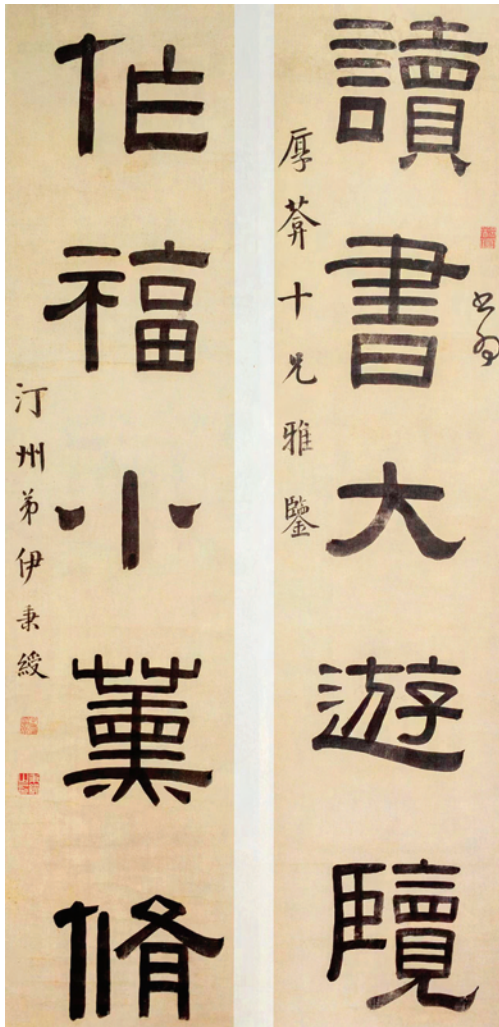 書為
讀書大遊覽
厚葊十兄雅鑒
作福小薰脩
汀州弟伊秉綬